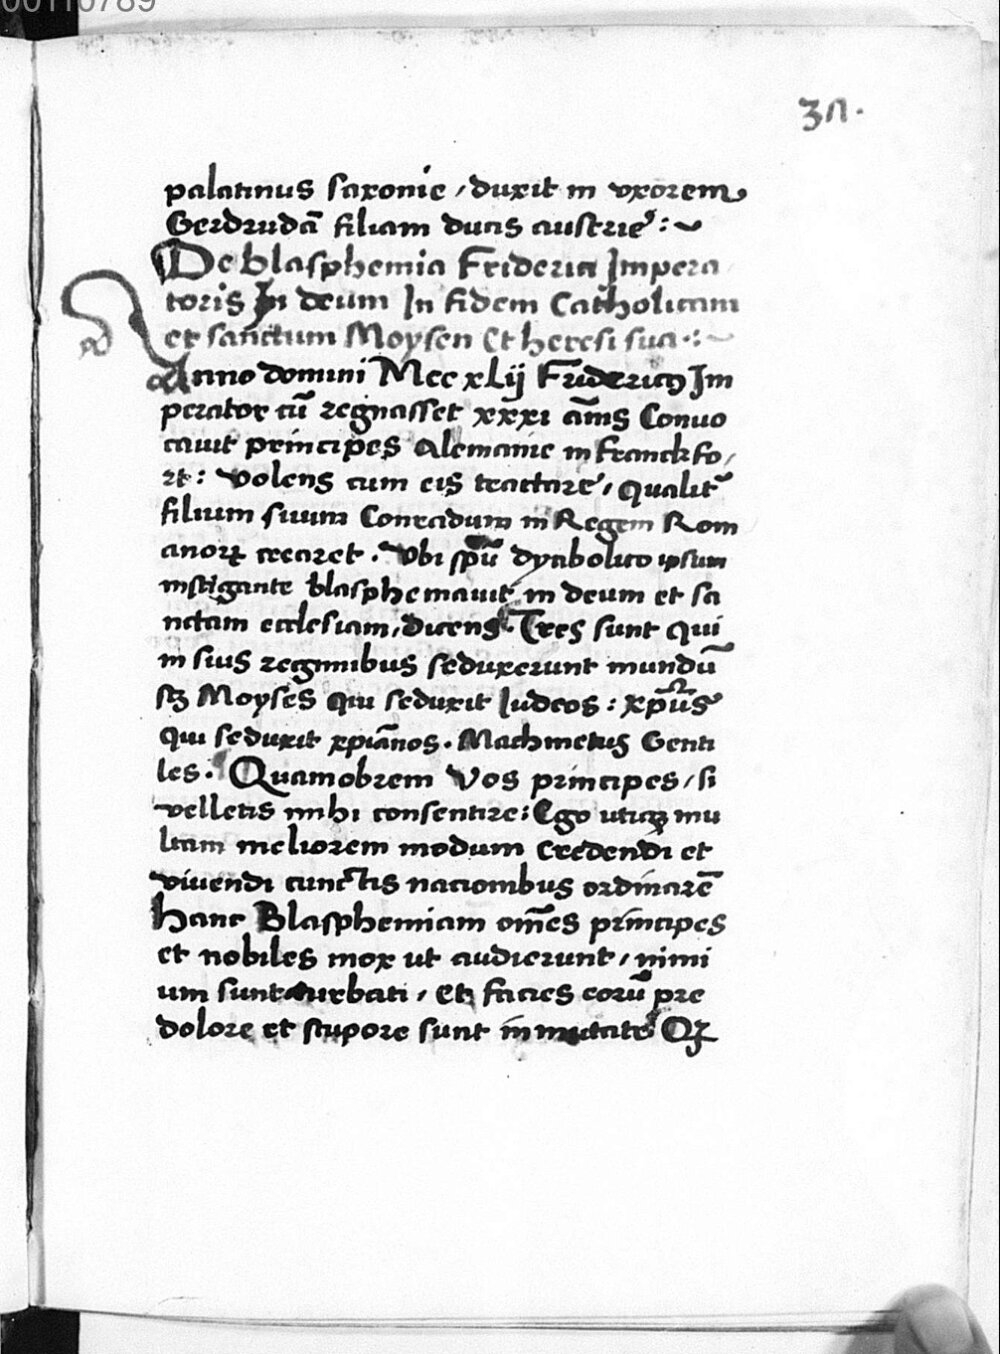 00110789
palatinus saxonie / duxit in vxorem
Gerdrudā filiam ducis austrie :~
De blasphemia Friderici Impera
toris In deum In fidem Catholicam
et sanctum Moysen Et heresi sua .:~
Anno domini Mcc xLij Fridericꝰ Im
perator cū regnasset xxxi ānis Conuo
cauit principes Alemanie in Franckfo /
rt : volens cum eis tractare / qualit̄
filium suum Conradum in Regem Rom
anorꝝ crearet . vbi spū dyabolico ipsum
instigante blasphemauit in deum et sa
nctam ecclesiam / dicens . Tres sunt qui
in suis regminibus seduxerunt mundū
scꝫ Moyses qui seduxit Iudeos : xpūs
qui seduxit xpiānos . Machmetus Genti
les . Quamobrem Vos principes / si
velletis mihi consentire : Ego utiqꝫ mu
ltam meliorem modum credendi et
viuendi cunctis nacionibus ordinarē
hanc Blasphemiam om̄es principes
et nobiles mox ut audierunt / nimi
um sunt turbati / Et facies eorū pre
dolore et stupore sunt inmutate Qꝫ